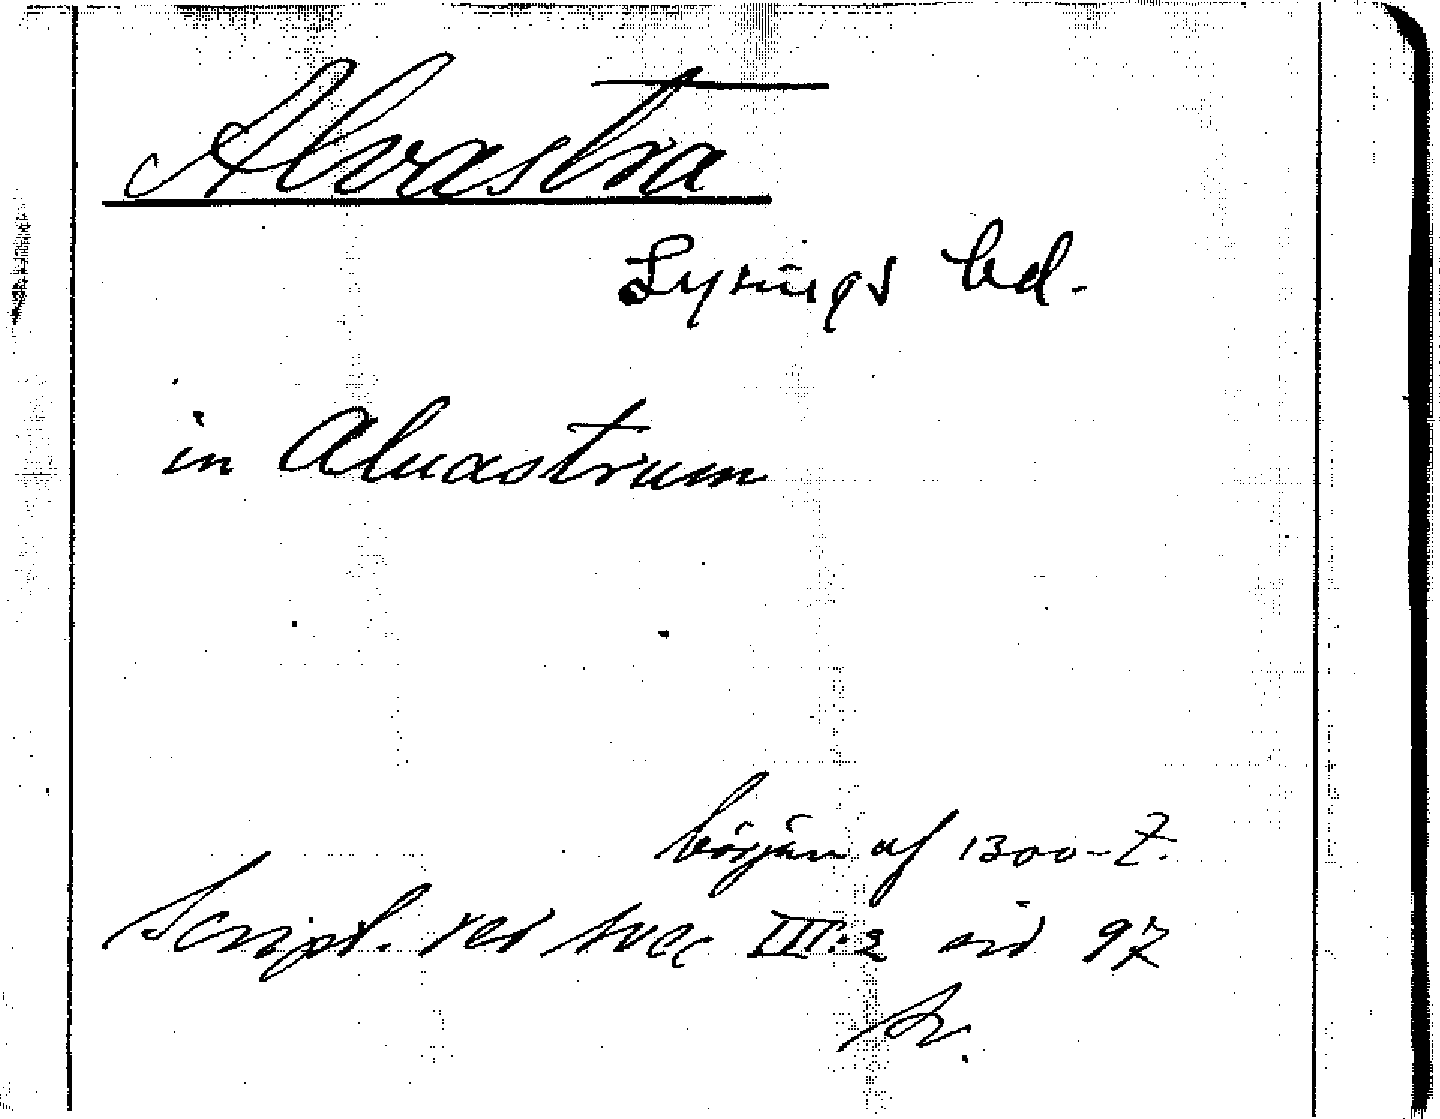 Alvastra
Lysings hd.
in Aluastrum
början af 1300-t.
Script. rer svec III:2 sid 97